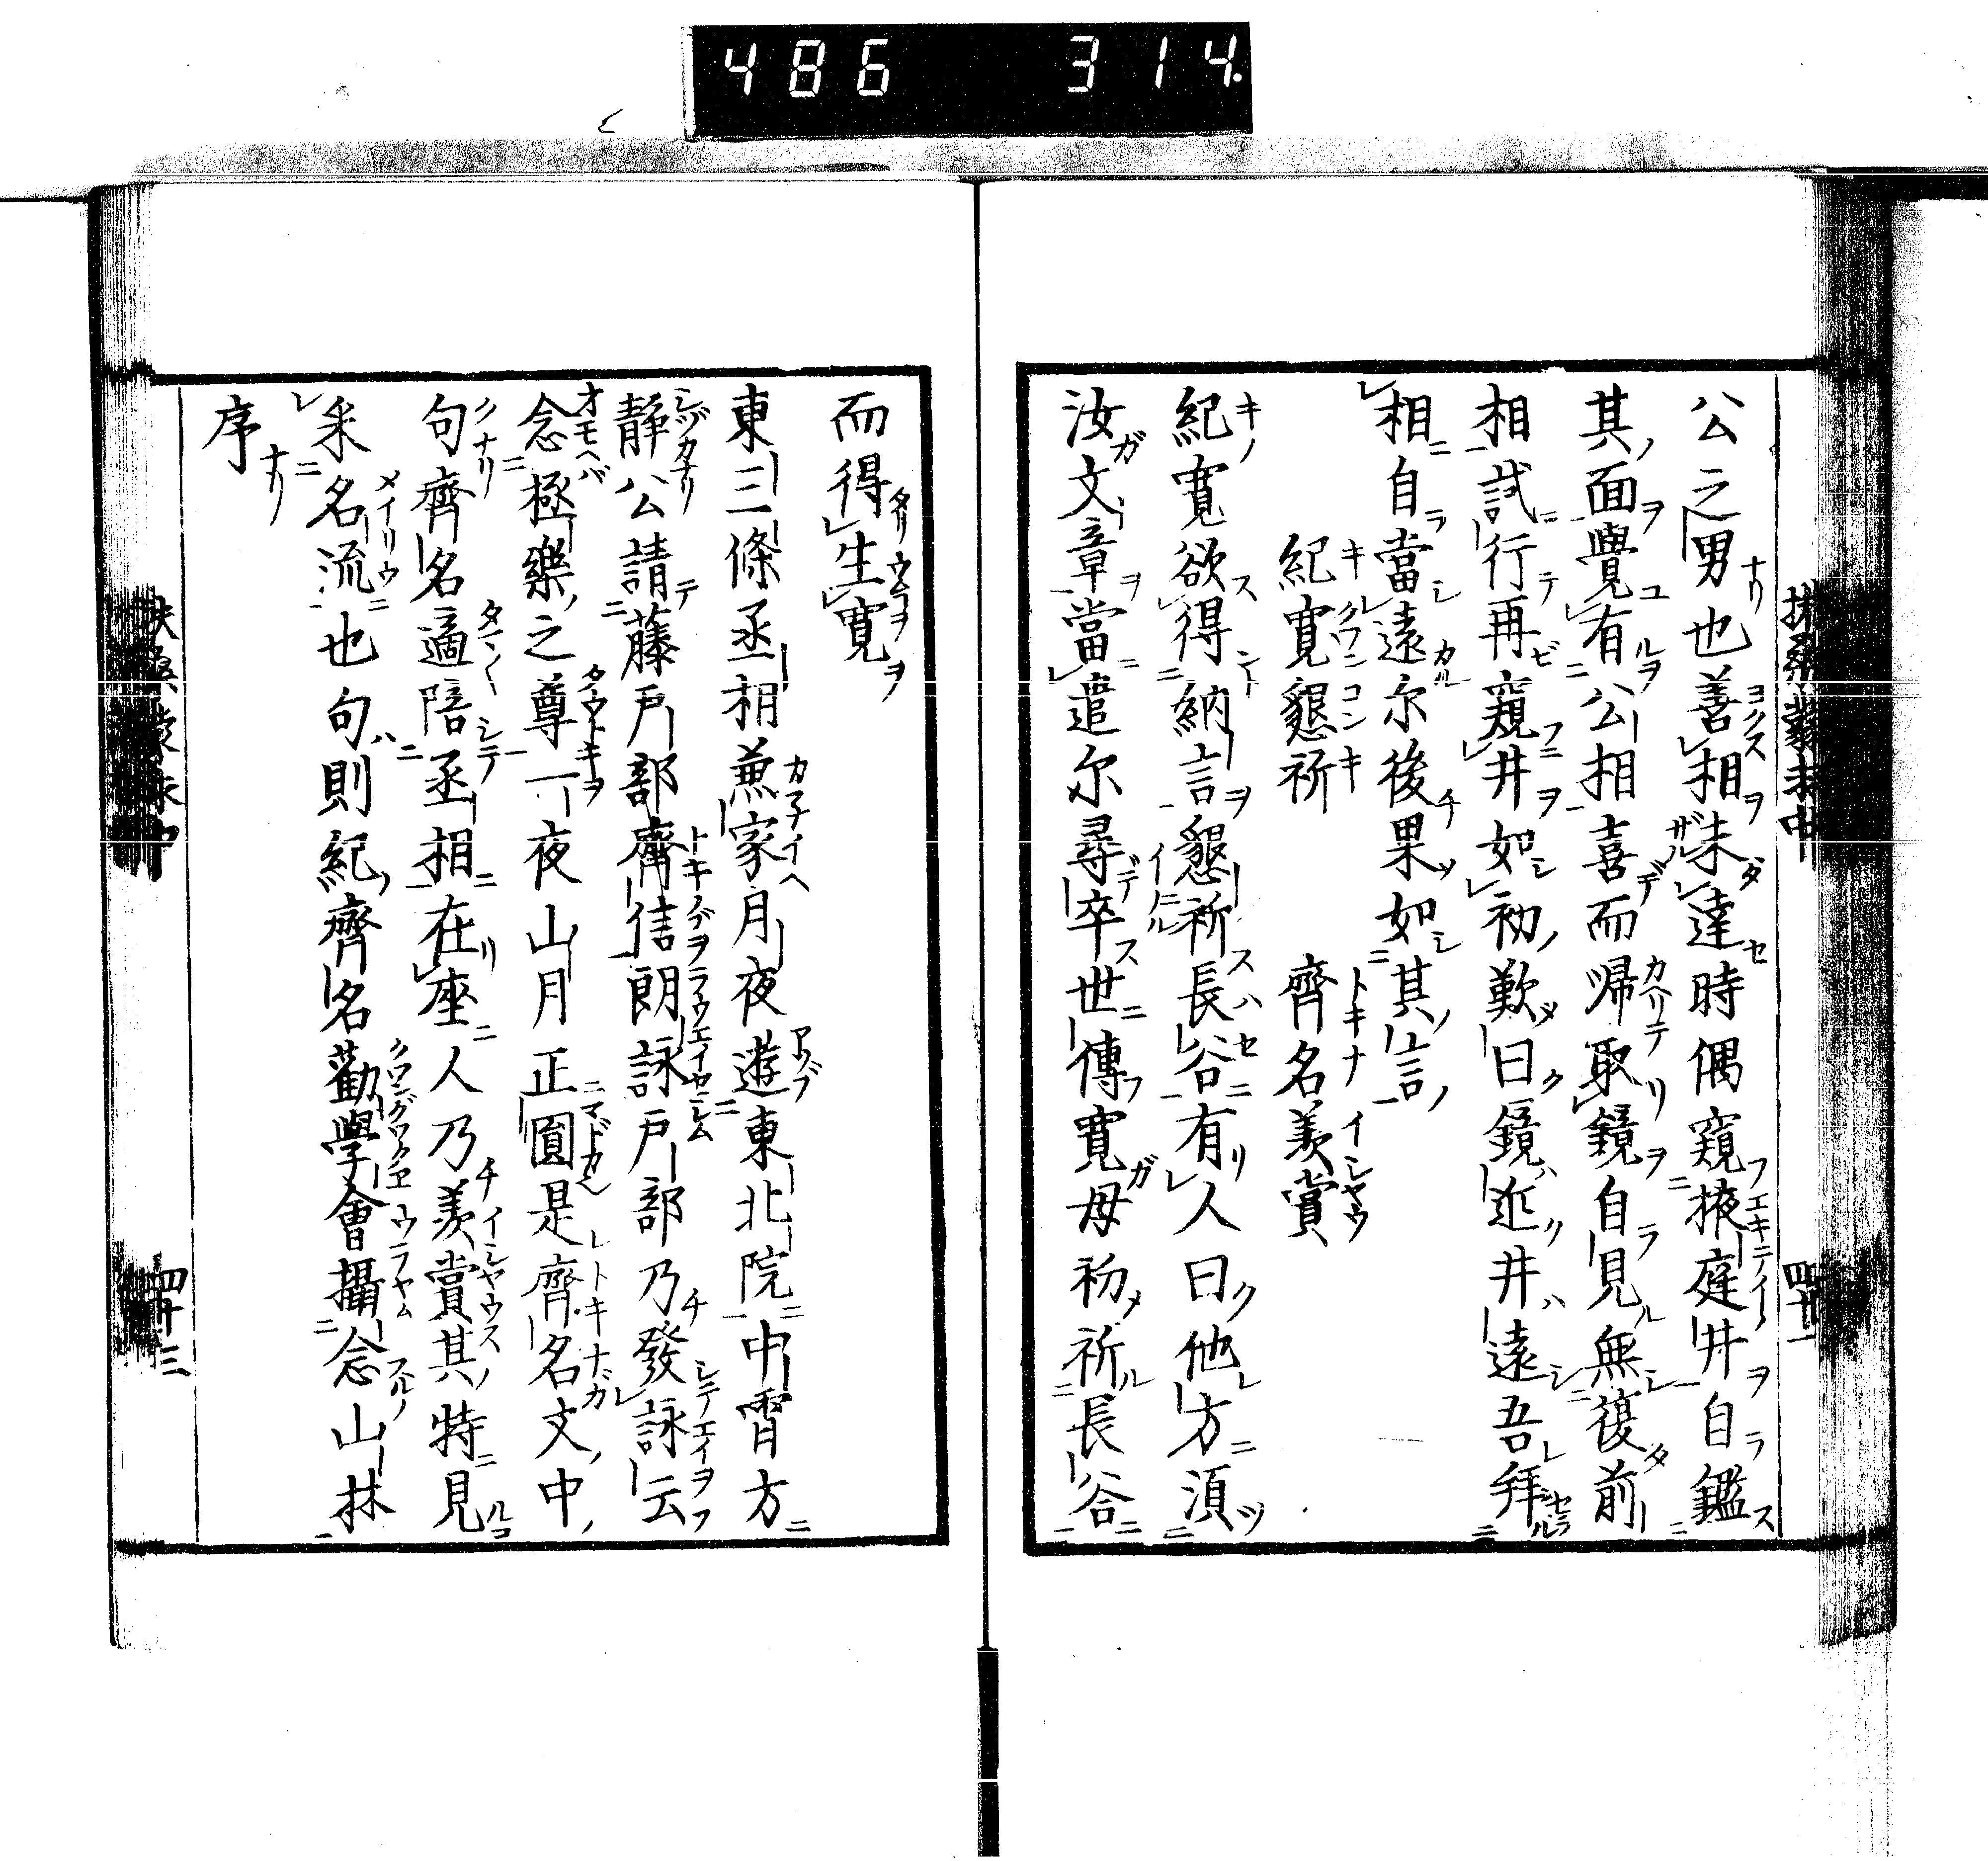 486 314.
公之男也善相未達時偶窺掖庭井自鑑
其面覺有公相喜而帰取鏡自見無復前
相試行再窺井如初歎曰鏡近井遠吾拜
相自當遠尓後果如其言
紀寛懇祈 齊名羨賞
紀寛欲得納言懇祈長谷有人曰他方湏
汝文章當遣尓尋卒世傳寛母初祈長谷
而得生寛
東三條丞相兼家月夜遊東北院中霄方
静公請藤戸部齊信朗詠戸部乃發詠云
念極樂之尊一夜山月正圓是齊名文中
句齊名適陪丞相在座人乃羨賞其特見
釆名流也句則紀齊名勸學會攝念山林
序
四十三